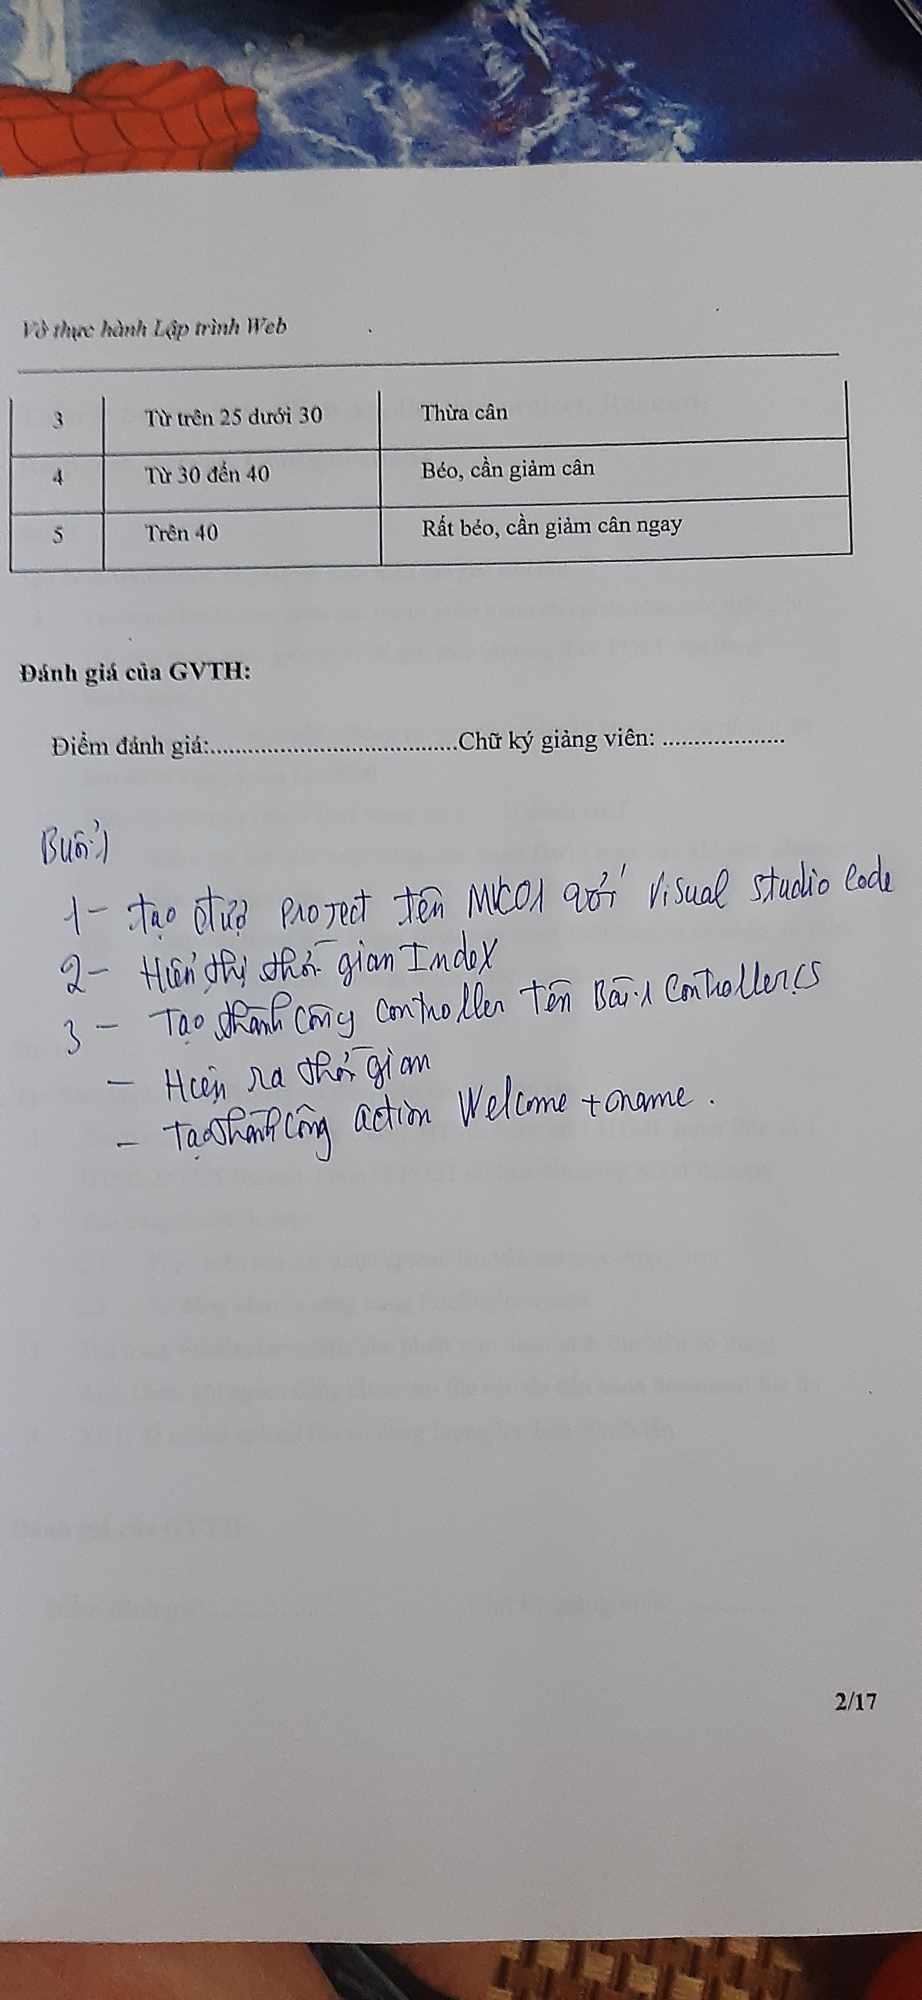 Vở thực hành Lập trình Web
3 Từ trên 25 dưới 30 Thừa cân
4 Từ 30 đến 40 Béo, cần giảm cân
5 Trên 40 Rất béo, cần giảm cân ngay
Đánh giá của GVTH:
Điểm đánh giá:.......................................Chữ ký giảng viên: ...................
Buổi 1
1- tạo được project tên MVC01 với Visual studio Code
2- Hiển thị thời gian Index
3 - Tạo thành công controller tên Bài1Controller.cs
- Hiện ra thời gian
- Tạo thành công action Welcome + name.
2/17